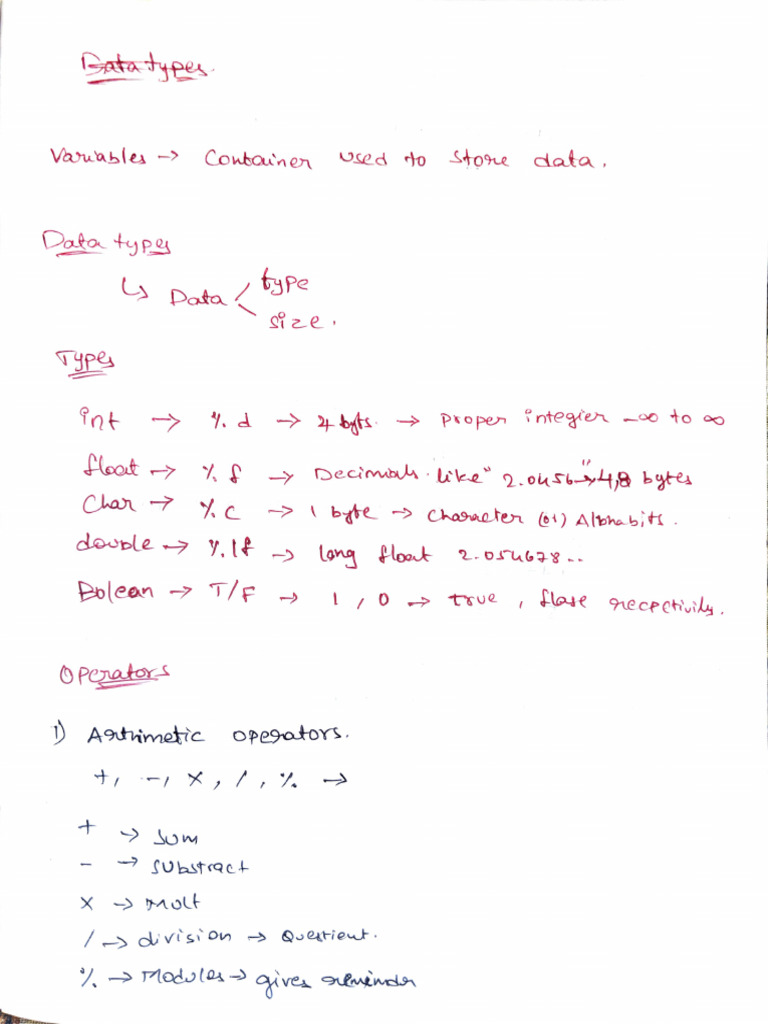 Data types.
Variables → Container used to store data.
Data types
↳ Data < type
size.
Types
int → %d → 4 byts. → proper integier -∞ to ∞
float → %f → Decimals. like "2.0456" → 4,8 bytes
Char → %c → 1 byte → character (or) Alphabits.
double → %lf → long float 2.054678..
Bolean → T/F → 1, 0 → true, flase recpectivily.
Operators
1) Arthimetic operators.
+, -, x, /, % →
+ → sum
- → substract
x → Mult
/ → division → Questient.
% → Modules → gives reminder